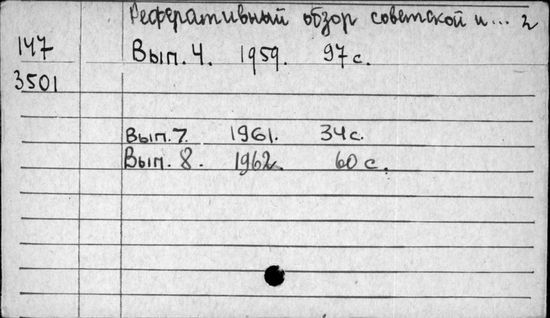 Реферативный обзор советской и... 2
147 Вып. 4. 1959. 97 с.
3501
Вып. 7. 1961. 34 с.
Вып. 8. 1962. 60 с.